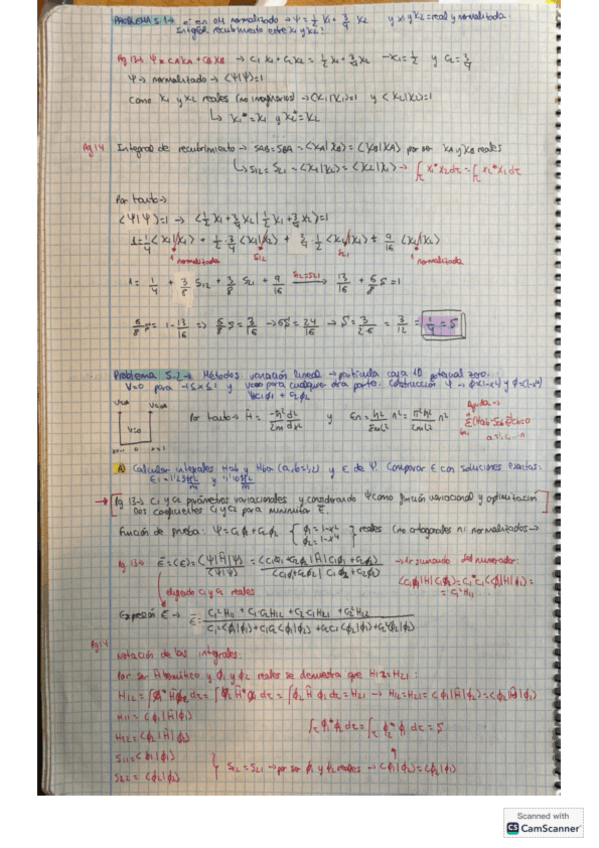 PROBLEMA 5.1 → en OM normalizado → Ψ = 1/2 X1 + 3/4 X2 y X1 y X2 = real y normalizada
Integral recubrimiento entre X1 y X2?
Pg 13 → Ψ = CAXA + CBXB → C1X1 + C2X2 = 1/2 X1 + 3/4 X2 → C1 = 1/2 y C2 = 3/4
Ψ → normalizado → <Ψ|Ψ> = 1
Como X1 y X2 reales (no imaginarios) → <X1|X1> = 1 y <X2|X2> = 1
↳ X1* = X1 y X2* = X2
Pg 14 Integral de recubrimiento → SAB = SBA = <XA|XB> = <XB|XA> por ser XA y XB reales
↳ S12 = S21 = <X1|X2> = <X2|X1> → ∫ X1* X2 dτ = ∫ X2* X1 dτ
Por tanto →
<Ψ|Ψ> = 1 → <1/2 X1 + 3/4 X2 | 1/2 X1 + 3/4 X2> = 1
1 = 1/4 <X1|X1> + 1/2 · 3/4 <X1|X2> + 3/4 · 1/2 <X2|X1> + 9/16 <X2|X2>
1 normalizada S12 S21 1 normalizada
1 = 1/4 + 3/8 S12 + 3/8 S21 + 9/16 S12=S21 → 13/16 + 6/8 S = 1
6/8 S = 1 - 13/16 => 6/8 S = 3/16 → 6S = 24/16 → S = 3/2·6 = 3/12 = 1/4 = S
Problema 5.2 → Métodos variación lineal → partícula caja 1D potencial zero.
V=0 para -1≤x≤1 y V=∞ para cualquier otra parte. Construcción Ψ → φ1(1-x²) y φ2(1-x⁴)
Ψ=C1φ1 + C2φ2
V=∞ V=∞
V=0
x=-1 x=1
Por tanto → Ĥ = -ħ² d² / 2m dx² y
Ayuda →
A) Calcular integrales Hab y Sab (a,b=1,2) y E de Ψ. Comparar E con soluciones exactas.
→ Pg 13 → C1 y C2 parámetros variacionales y considerando Ψ como función variacional y optimización
Dos coeficientes C1 y C2 para minimizar Ē.
Función de prueba: Ψ = C1φ1 + C2φ2 { φ1 = 1-x² φ2 = 1-x⁴ } reales (no ortogonales ni normalizados →
Pg 13 → Ē = <E> = <Ψ|Ĥ|Ψ> / <Ψ|Ψ> = <C1φ1 + C2φ2|Ĥ|C1φ1 + C2φ2> / <C1φ1 + C2φ2|C1φ1 + C2φ2> → numerador:
<C1φ1|Ĥ|C1φ1> = C1*C1<φ1|Ĥ|φ1> =
= C1² H11
C1 y C2 reales
Expresión Ē → Ē = C1² H11 + C1C2H12 + C2C1H21 + C2² H22 / C1²<φ1|φ1> + C1C2<φ1|φ2> + C2C1<φ2|φ1> + C2²<φ2|φ2>
Pg 14
Notación de las integrales:
Por ser Ĥ hermítico y φ1 y φ2 reales se demuestra que H12 = H21:
H12 = ∫ φ1* Ĥ φ2 dτ = ∫ φ2 Ĥ* φ1 dτ = ∫ φ2 Ĥ φ1 dτ = H21 → H12 = H21 = <φ1|Ĥ|φ2> = <φ2|Ĥ|φ1>
H11 = <φ1|Ĥ|φ1>
∫ φ1* φ2 dτ = ∫ φ2* φ1 dτ = S
S11 = <φ1|φ1>
S22 = <φ2|φ2>
S12 = S21 → por ser φ1 y φ2 reales → <φ1|φ2> = <φ2|φ1>
Scanned with
CS CamScanner